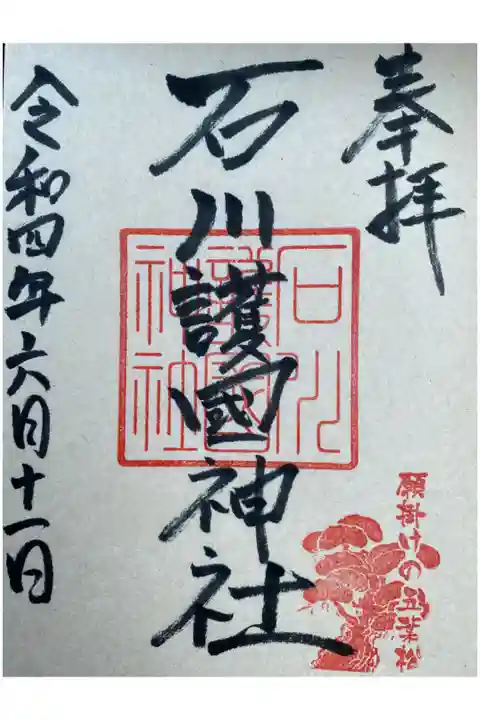 奉拝
石川護國神社
石川
護國
神社
令和四年六月十一日
願掛けの五葉松